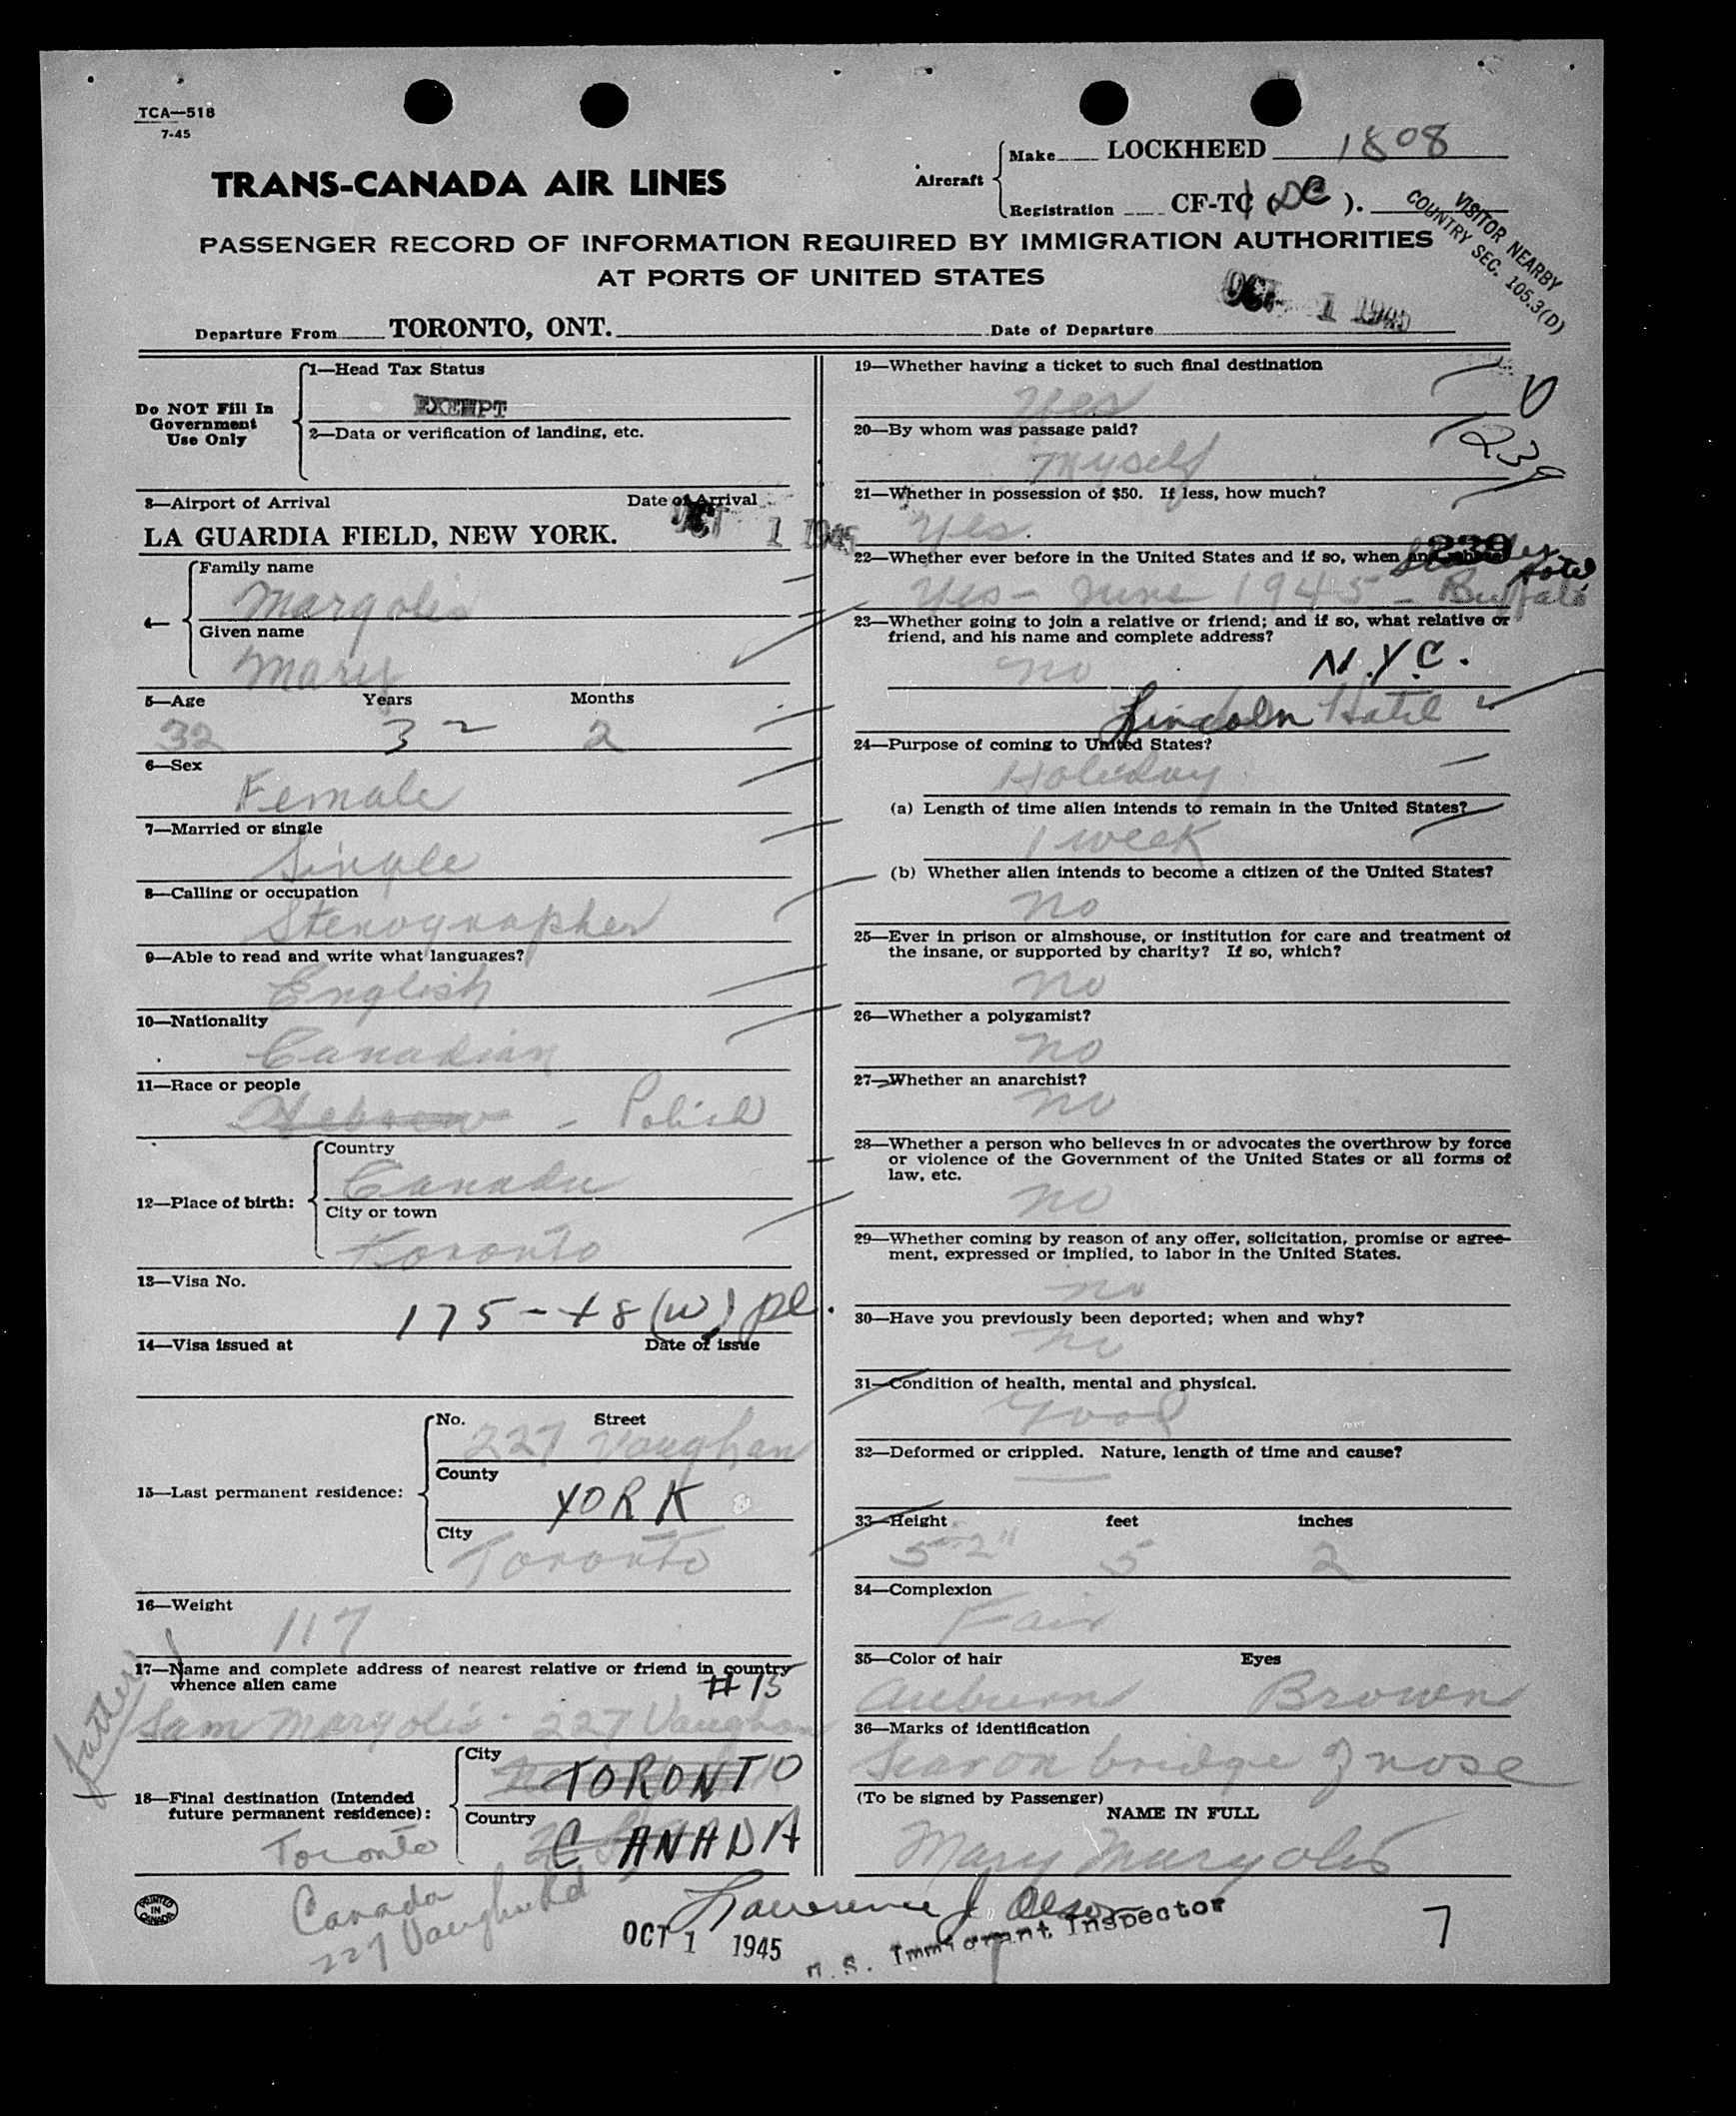 TCA—518
7-45
TRANS-CANADA AIR LINES
Aircraft
Make LOCKHEED 1808
Registration CF-TC (DC ).
VISITOR NEARBY
COUNTRY SEC. 105.3(D)
PASSENGER RECORD OF INFORMATION REQUIRED BY IMMIGRATION AUTHORITIES
AT PORTS OF UNITED STATES
Departure From TORONTO, ONT.
Date of Departure OCT 1 1945
Do NOT Fill In
Government
Use Only
1—Head Tax Status
EXEMPT
2—Data or verification of landing, etc.
3—Airport of Arrival Date of Arrival
LA GUARDIA FIELD, NEW YORK. OCT 1 1945
4—
Family name
Margolis
Given name
Mary
5—Age Years Months
32 32 2
6—Sex
Female
7—Married or single
Single
8—Calling or occupation
Stenographer
9—Able to read and write what languages?
English
10—Nationality
Canadian
11—Race or people
Hebrew - Polish
12—Place of birth:
Country
Canada
City or town
Toronto
13—Visa No.
175-+8(w) pl.
14—Visa issued at Date of issue
15—Last permanent residence:
No. Street
227 Vaughan
County
YORK
City
Toronto
16—Weight
117
17—Name and complete address of nearest relative or friend in country
whence alien came
#15
father
Sam Margolis - 227 Vaughan
18—Final destination (Intended
future permanent residence):
City
TORONTO
Country
CANADA
Toronto
Canada
227 Vaughn Rd
19—Whether having a ticket to such final destination
Yes
20—By whom was passage paid?
Myself
239
21—Whether in possession of $50. If less, how much?
Yes.
239
22—Whether ever before in the United States and if so, when and where
Hotel
Yes - June 1945 - Buffalo
23—Whether going to join a relative or friend; and if so, what relative or
friend, and his name and complete address?
no N.Y.C.
Lincoln Hotel
24—Purpose of coming to United States?
Holiday
(a) Length of time alien intends to remain in the United States?
1 week
(b) Whether alien intends to become a citizen of the United States?
no
25—Ever in prison or almshouse, or institution for care and treatment of
the insane, or supported by charity? If so, which?
no
26—Whether a polygamist?
no
27—Whether an anarchist?
no
28—Whether a person who believes in or advocates the overthrow by force
or violence of the Government of the United States or all forms of
law, etc.
no
29—Whether coming by reason of any offer, solicitation, promise or agree-
ment, expressed or implied, to labor in the United States.
no
30—Have you previously been deported; when and why?
no
31—Condition of health, mental and physical.
Good
32—Deformed or crippled. Nature, length of time and cause?
33—Height feet inches
5-2" 5 2
34—Complexion
Fair
35—Color of hair Eyes
Auburn Brown
36—Marks of identification
Scar on bridge of nose
(To be signed by Passenger)
NAME IN FULL
Mary Margolis
PRINTED
IN
CANADA
Lawrence J. Olson
OCT 1 1945
U. S. Immigrant Inspector
7